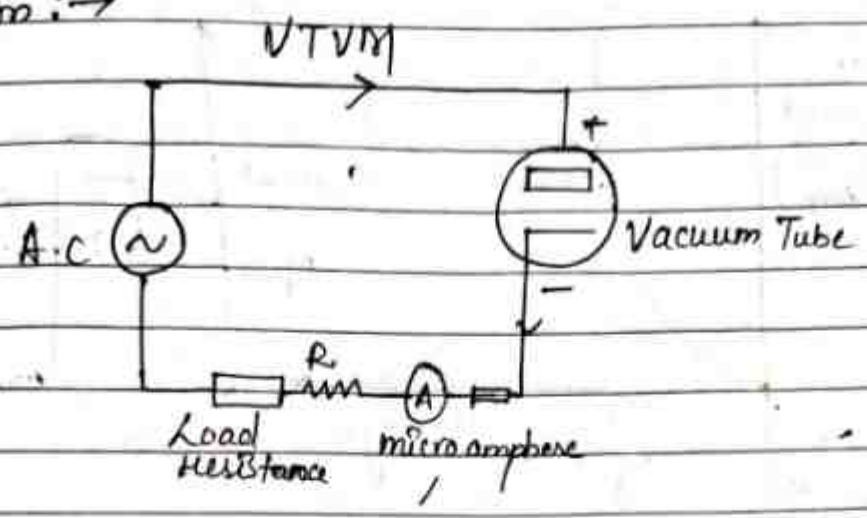 m :→
VTVM
+
A.C
~
Vacuum Tube
−
R
A
Load
resistance
microamphere